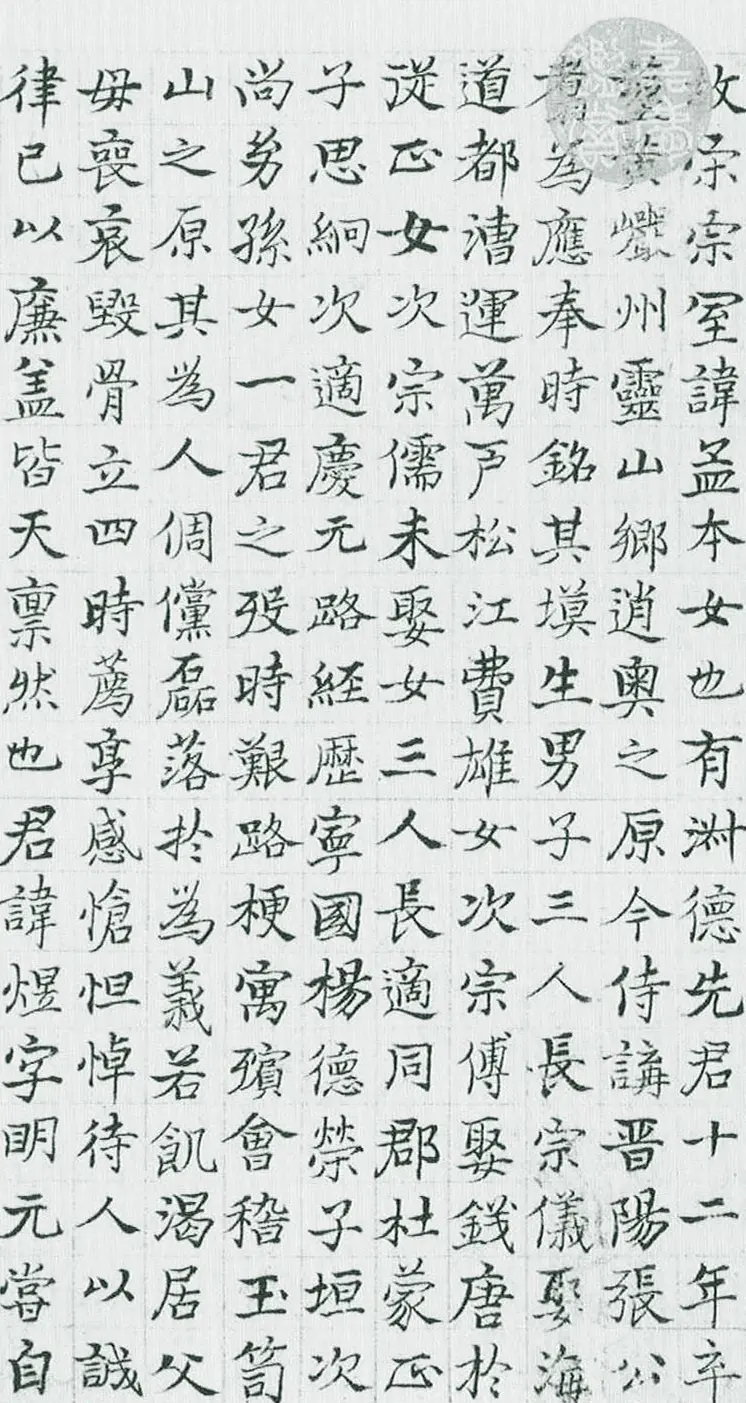 故宋宗室諱孟本女也有淋德先君十二年卒
葬黄巗州靈山鄉逍奥之原今侍講晋陽張公
翥為應奉時銘其塻生男子三人長宗儀娶海
道都漕運萬戸松江費雄女次宗傅娶錢唐於
從正女次宗儒未娶女三人長適同郡杜蒙正
子思絅次適慶元路経歴寧國楊德榮子垣次
尚㓜孫女一君之殁時艱路梗寓殯會稽玉笥
山之原其為人倜儻磊落扵為義若飢渴居父
毋喪哀毀骨立四時薦享感愴怛悼待人以誠
律已以廉盖皆天禀然也君諱煜字明元嘗自